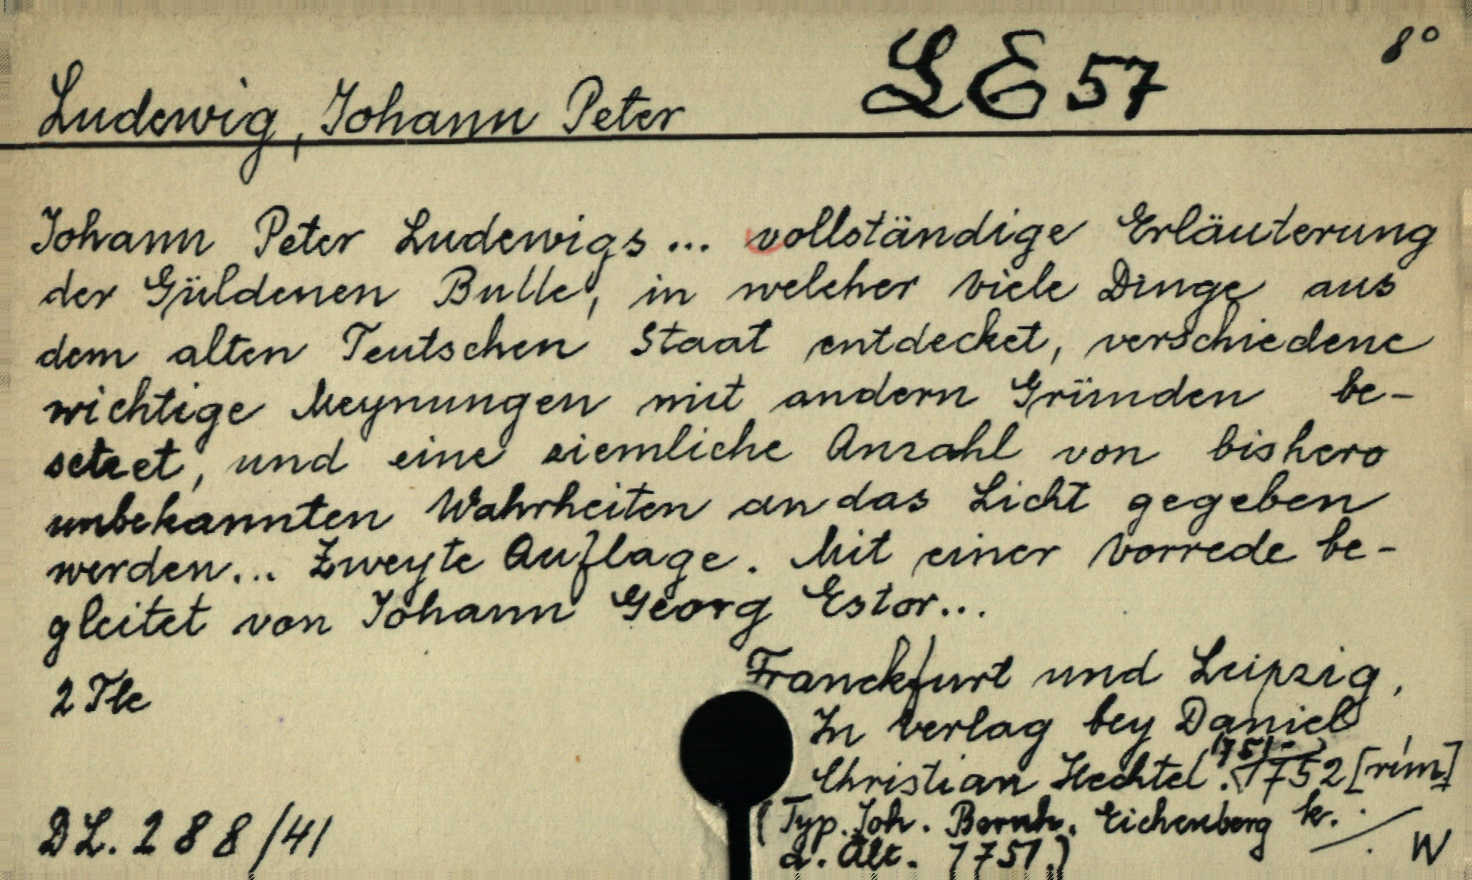 LE 57
8°
Ludewig, Johann Peter
Johann Peter Ludewigs... vollständige Erläuterung
der Güldenen Bulle, in welcher viele Dinge aus
dem alten Teutschen Staat entdecket, verschiedene
wichtige Meynungen mit andern Gründen be-
setzet, und eine ziemliche Anzahl von bishero
unbekannten Wahrheiten an das Licht gegeben
werden... Zweyte Auflage. Mit einer Vorrede be-
gleitet von Johann Georg Estor...
2 Tle
Franckfurt und Leipzig,
In Verlag bey Daniel
Christian Hechtel. 1751-1752 [rím]
(Typ. Joh. Bernh. Eichenberg
d. Ält. 1751.)
DL. 288/41
W